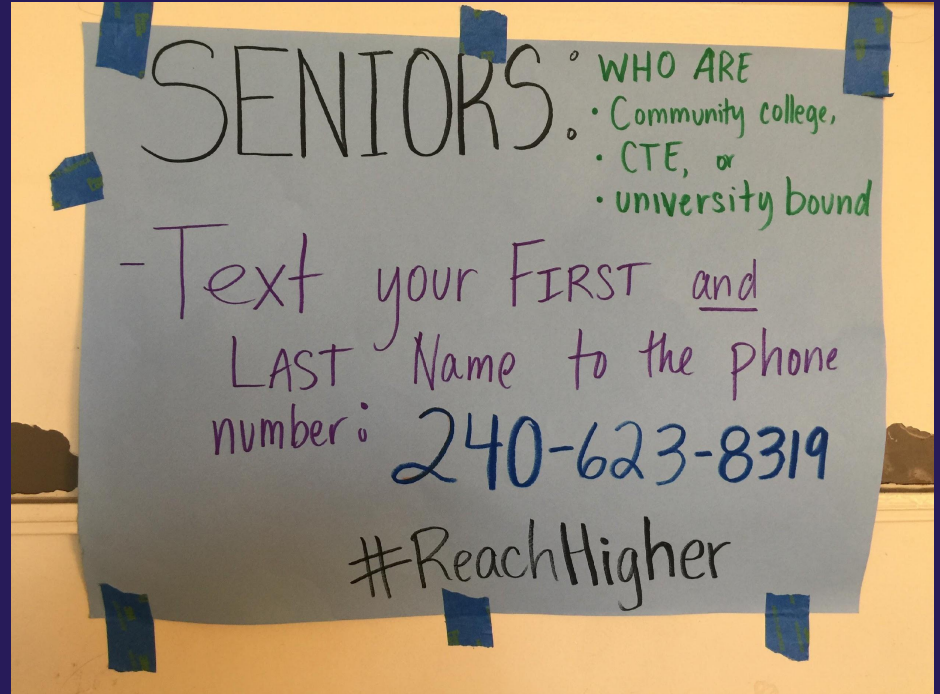 SENIORS:
WHO ARE
• Community college,
• CTE, or
• university bound
- Text your FIRST and
LAST Name to the phone
number: 240-623-8319
#ReachHigher